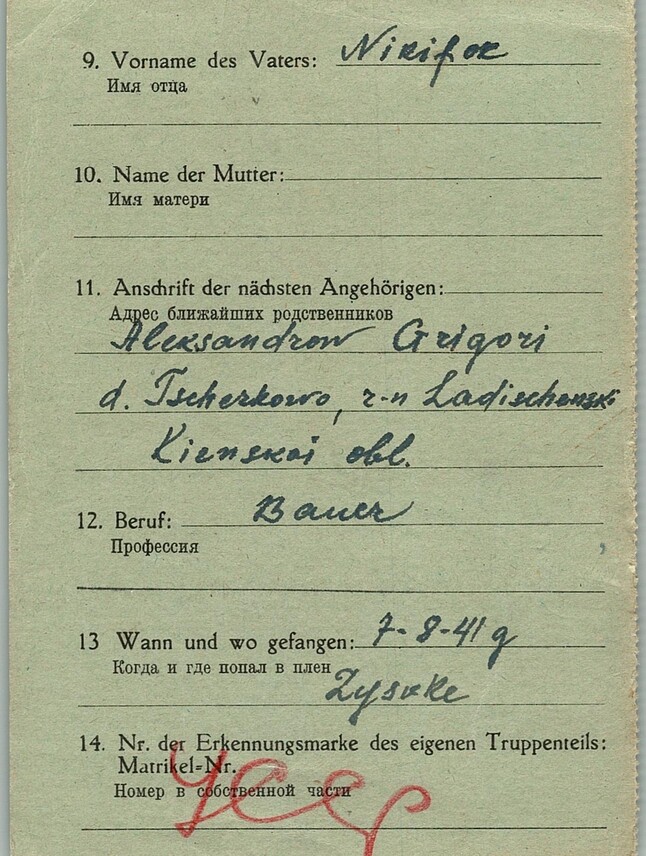 9. Vorname des Vaters: Nikifor
Имя отца
10. Name der Mutter:
Имя матери
11. Anschrift der nächsten Angehörigen:
Адрес ближайших родственников
Aleksandrow Grigori
d. Tscherkowo, r-n Ladischenski
Kienskoi obl.
12. Beruf: Bauer
Профессия
13 Wann und wo gefangen: 7-8-41 g
Когда и где попал в плен
14. Nr. der Erkennungsmarke des eigenen Truppenteils:
Matrikel=Nr.
Номер в собственной части